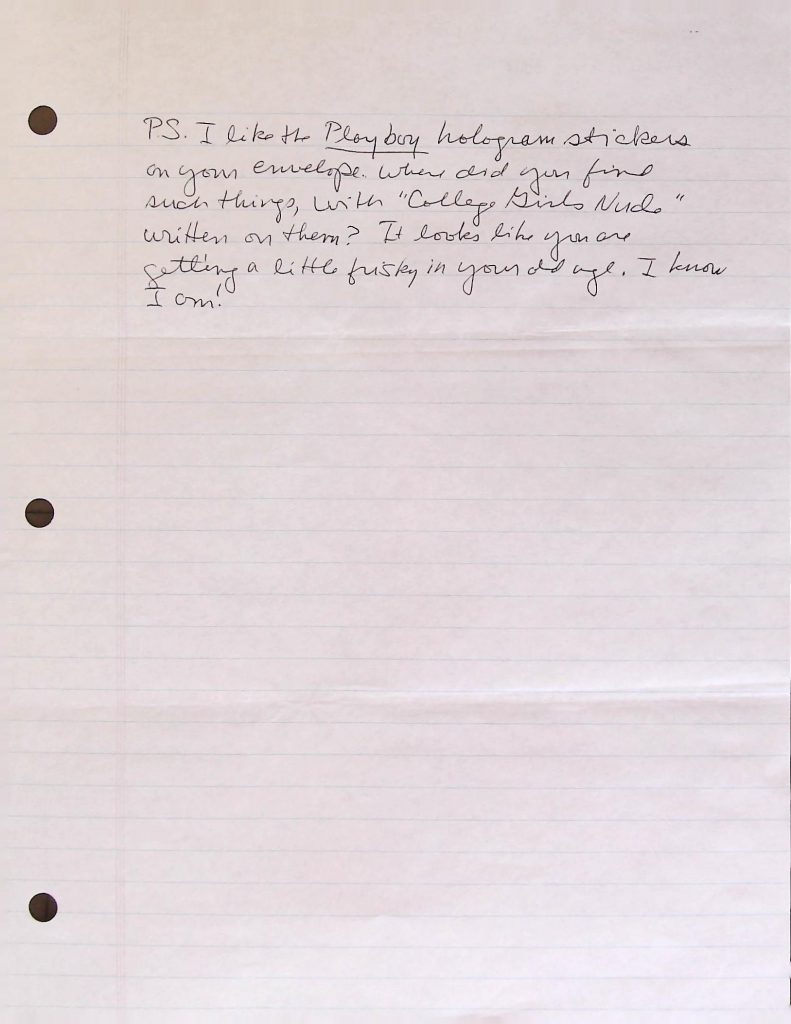 PS. I like the Playboy hologram stickers
on your envelope. Where did you find
such things, with "College Girls Nude"
written on them? It looks like you are
getting a little frisky in your old age. I know
I am!